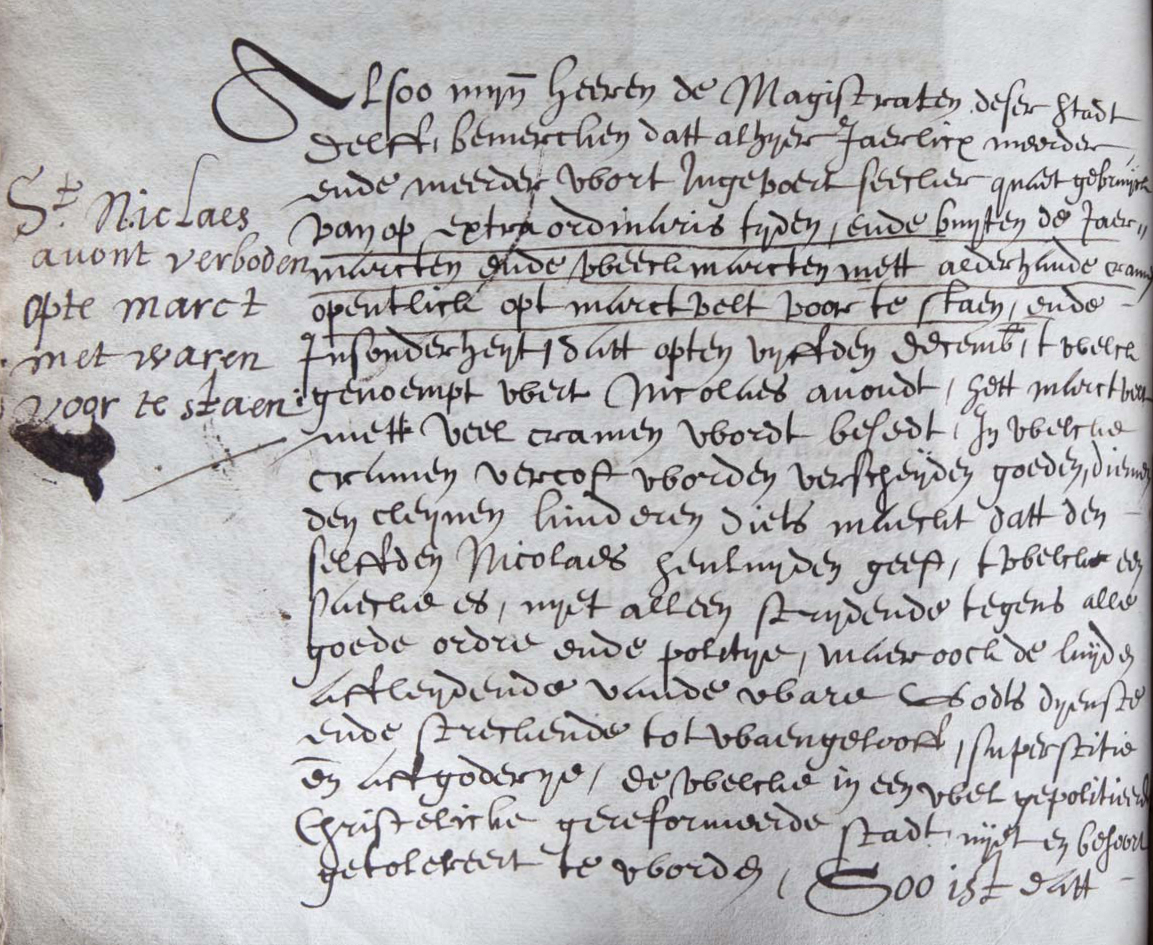 St Niclaes
avont verboden
opte marct
met waren
voor te staen
Alsoo mijn Heeren de Magistraten deser Stadt
Delff, bemercken datt alhyer Jaerlicx meerder
ende meerder wort Ingevoert seecker quaet gebruyck
van op extraordinaris tyden, ende buyten de Jaer„
marcten ende weeckmarcten mett alderhande cram
opentlick opt marctvelt voor te staen, ende
Insonderheyt, datt opten vyffden Decemb, twelck
genoempt wert Nicolaes avondt, hett marctvelt
mett veel cramen wordt besedt, In welcke
cramen vercoft worden verscheyden goeden, diemen
den cleynen kinderen diets maeckt datt den
selffden Nicolaes henluyden geeft, twelcke een
saecke es, nyet alleen strydende tegens alle
goede ordre ende politye, maer oock de luyden
affleydende vande ware Godts dyenste
ende streckende tot waengelooff, superstitie
en affgoderye, de welcke in een wel gepolitieerde
Christelicke gereformeerde stadt nyet en behoort
getolereert te worden, Soo ist datt